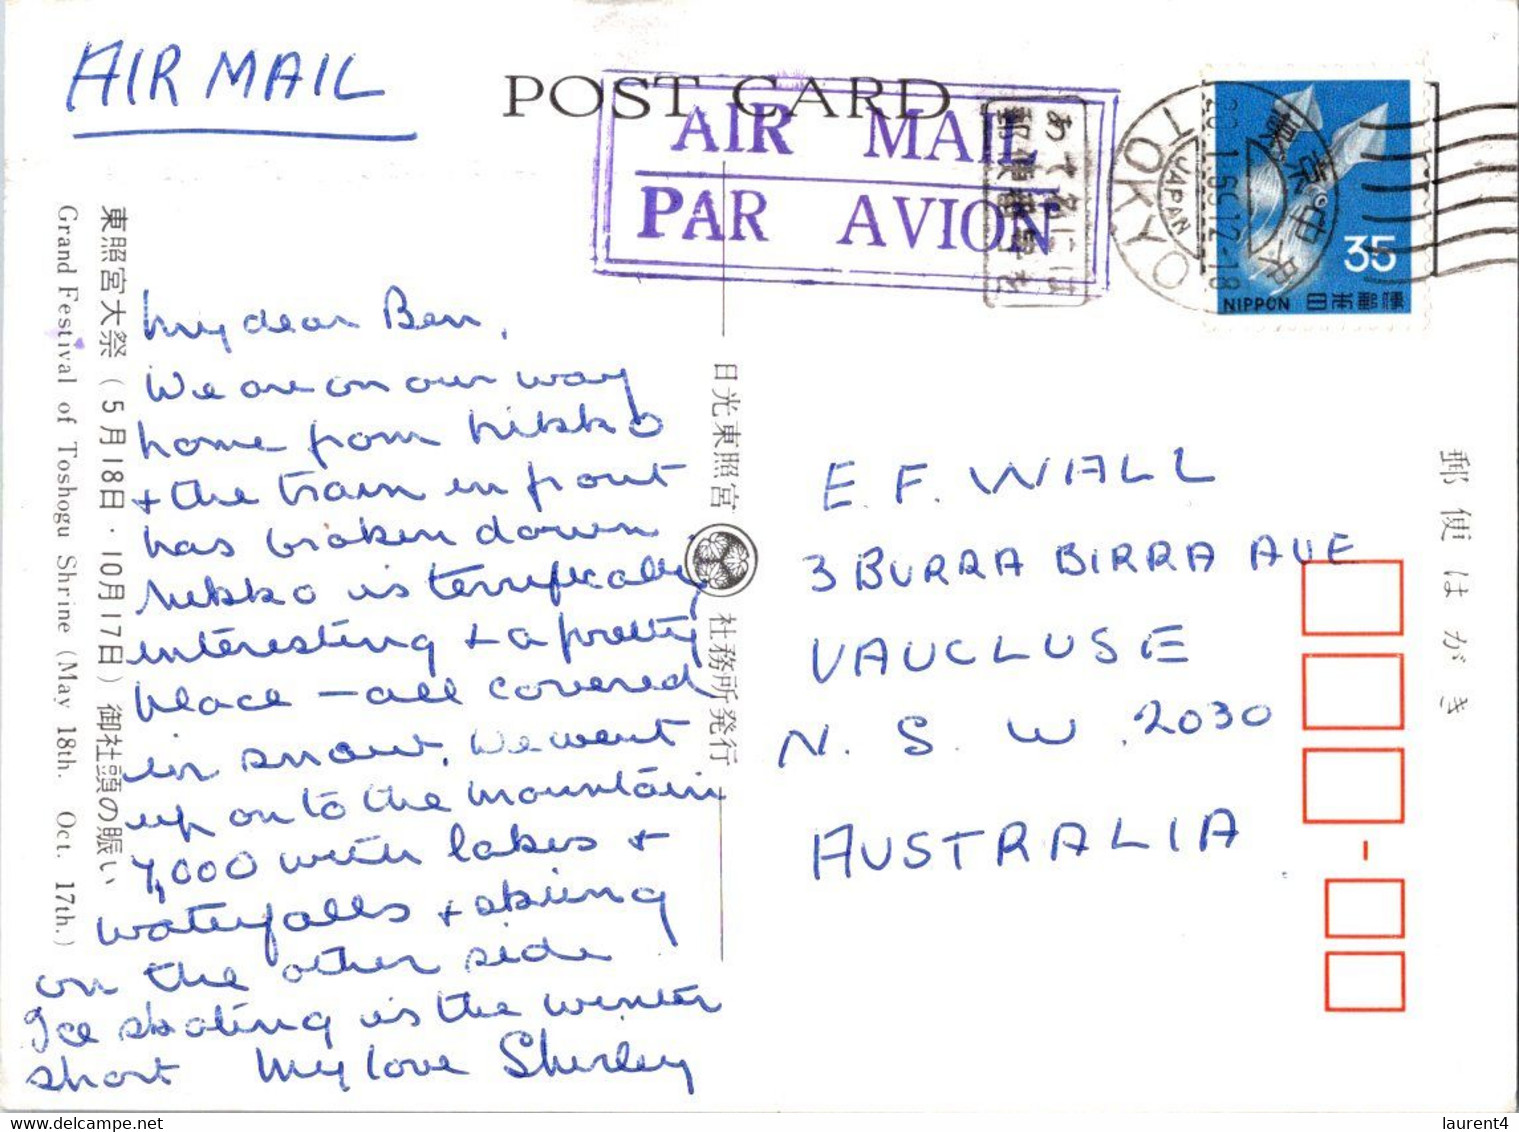 AIR MAIL
POST CARD
AIR MAIL
PAR AVION
あて名には
郵便番号を
TOKYO
JAPAN
東京中央
35
NIPPON 日本郵便
東照宮大祭(5月18日・10月17日)御社頭の賑い
Grand Festival of Toshogu Shrine (May 18th. Oct. 17th.)
My dear Ben,
We are on our way
home from Nikko
+ the train in front
has broken down.
Nikko is terrifically
interesting + a pretty
place – all covered
in snow. We went
up onto the mountain
7,000 with lakes +
waterfalls + skiing
on the other side
Ice skating is the winter
short My love Shirley
日光東照宮 社務所発行
E. F. WALL
3 BURRA BIRRA AVE
VAUCLUSE
N. S. W. 2030
AUSTRALIA
郵便はがき
laurent4